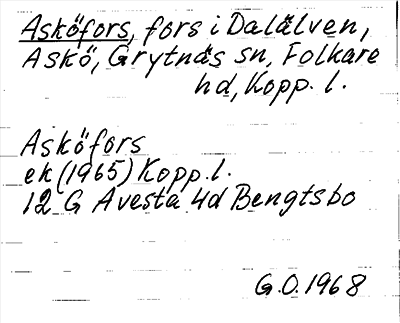 Asköfors, fors i Dalälven,
Askö, Grytnäs sn, Folkare
hd, Kopp. l.
Asköfors
ek (1965) Kopp. l.
12 G Avesta 4d Bengtsbo
G.O. 1968